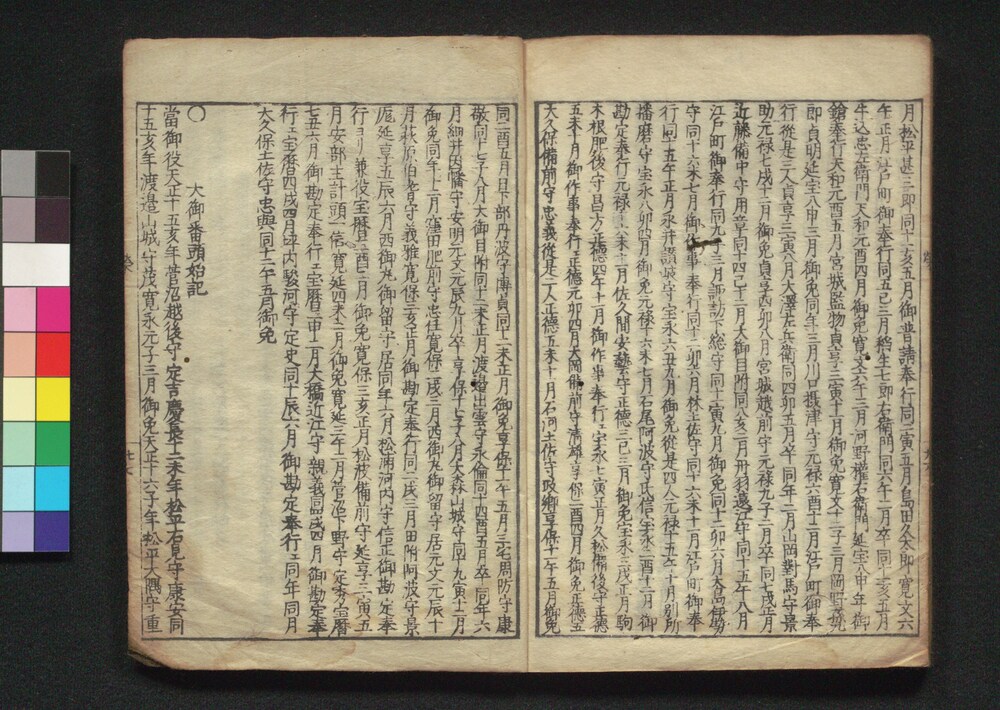 月松平甚三郎同十二亥五月御普請奉行同二寅五月島田久太郎寛文六
午正月江戸町御奉行同五巳三月稲生七郎右衛門同六午二月卒同十一亥五月
牛込忠左衛門天和元酉四月御免寛文六午三月河野權右衛門延宝八申年御
鎗奉行天和元酉五月宮城監物貞享三寅十月御免寛文十二子三月岡野孫九
郎貞明延宝八申三月御免同年三月川口摂津守元禄六酉十二月江戸町御奉
行從是三人貞享三寅六月大澤左兵衛同四卯五月卒同年二月山岡對馬守景
助元禄七戌十二月御免貞享四卯八月宮城越前守元禄九子二月卒同七戌正月
近藤備中守用章同十四巳十二月大御目附同八亥二月丹羽遠江守同十五午八月
江戸町御奉行同九子三月諏訪下総守同十一寅九月御免同十二卯六月大島伊勢
守同十六未七月御作事奉行同十二卯六月林土佐守同十六未十一月江戸町御奉
行同十五午正月永井讃岐守宝永六丑九月御免從是四人元禄十五午十月別所
播磨守宝永八卯四月御免元禄十六未七月石尾阿波守氏信宝永二酉十二月御
勘定奉行元禄十六未十一月佐久間安藝守正徳三巳三月御免宝永三戌正月駒
木根肥後守昌方正徳四午十一月御作事奉行宝永七寅正月久松備後守正徳
五未十一月御作事奉行正徳元卯四月大岡備前守清雄享保二酉四月御免正徳五
大久保備前守忠義從是二人正徳五未十一月石河土佐守政郷享保十一午五月御免
同二酉五月日下部丹波守博貞同十二未正月御免享保十一午五月三宅周防守康
敬同十七子八月大御目附同十二未正月渡邊出雲守永倫同十四酉五月卒同年六
月細井因幡守安明元文元辰九月卒享保十七子八月大森山城守同十九寅十二月
御免同年十二月窪田肥前守忠任寛保二戌三月西御丸御留守居元文元辰十
月萩原伯耆守美雅寛保三亥正月御勘定奉行同二戌三月田附阿波守景
厖延享五辰六月西御丸御留守居同年六月松浦河内守信正御勘定奉
行ヨリ兼役宝暦二酉二月御免寛保三亥正月松波備前守延享三寅五
月安部主計頭一信寛延四未二月御免寛延三午三月菅沼下野守定秀宝暦
七丑六月御勘定奉行宝暦二申二月大橋近江守親義同四戌四月御勘定奉
行宝暦四戌四月坪内駿河守定史同十辰六月御勘定奉行同年同月
大久保土佐守忠與同十二午五月御免
大御番頭始記
○
當御役天正十五亥年菅沼越後守定吉慶長十二未年松平石見守康安同
十五亥年渡邉山城守茂寛永元子三月御免天正十六子年松平大隅守重